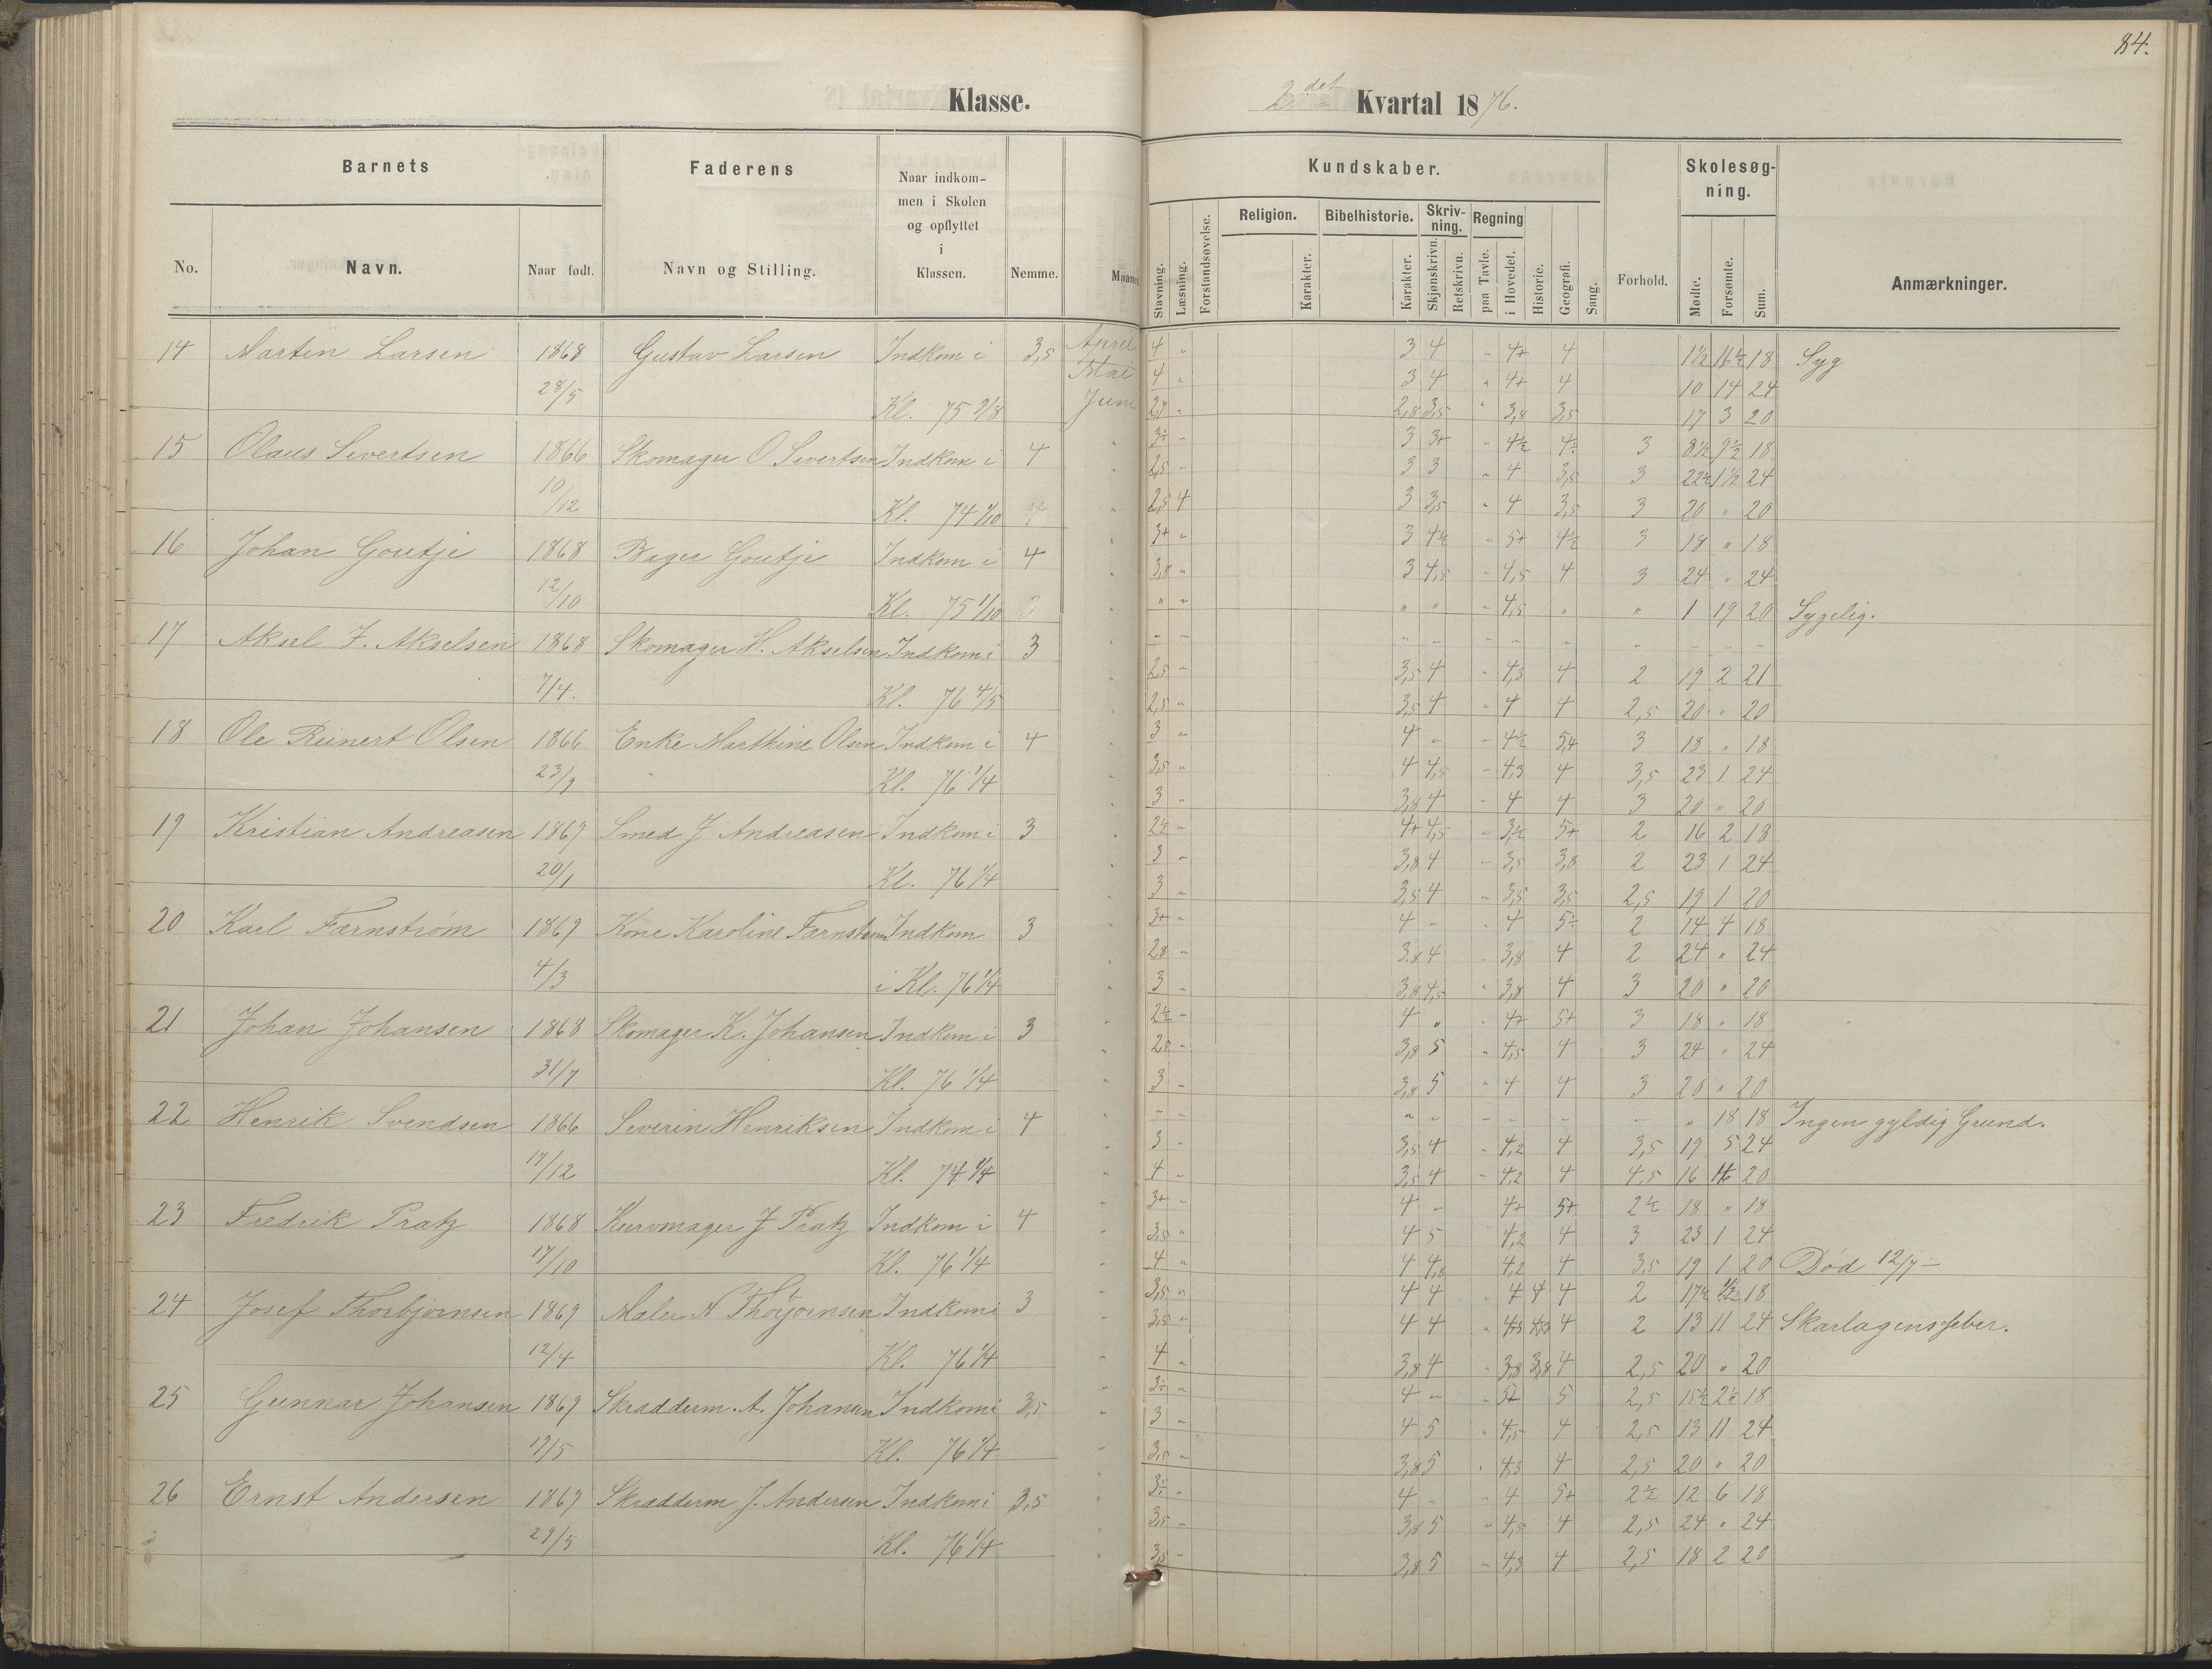 84.
Klasse.
2det Kvartal 1876.
Barnets Faderens Naar indkommen i Skolen og opflyttet i Klassen. Nemme. Maaned
No. Navn. Naar født. Navn og Stilling.
Kundskaber. Forhold. Skolesøgning. Anmærkninger.
Stavning. Læsning. Forstandsøvelse. Religion. Karakter. Bibelhistorie. Karakter. Skrivning. Skjønskrivn. Retskrivn. Regning paa Tavle. i Hovedet. Historie. Geografi. Sang. Mødte. Forsømte. Sum.
14 Martin Larsen 1868 Gustav Larsen Indkom i 3,5 April 4 " 3 4 " 4+ 4 1½ 16½ 18 Syg
28/5 Mai 4 " 3 4 " 4+ 4 10 14 24
Kl. 75 Juni 2,7 " 2,8 3,5 " 3,8 3,5 17 3 20
15 Olaus Sivertsen 1866 Skomager O Sivertsen Indkom i 4 3÷ " 3 3+ " 4½ 4÷ 3 8½ 9½ 18
10/12 2,5 " 3 3 " 4 3,5 3 22½ 1½ 24
Kl. 74 1/10 2,5 4 3 3,5 " 4 3,5 3 20 " 20
16 Johan Goutje 1868 Bager Goutje Indkom i 4 3+ " 3 4½ " 5+ 4½ 3 18 " 18
12/10 3,8 " 3 4,5 " 4,5 4 3 24 " 24
Kl. 75 1/10 " " " " " 4,5 " " 1 19 20 Sygelig.
17 Aksel F. Akselsen 1868 Skomager H. Akselsen Indkom i 3 " " " " " " " " " " "
7/4. 2,5 " 3,5 4 " 4,5 4 2 19 2 21
Kl. 76 4/5 2,5 " 3,5 4 " 4 4 2,5 20 " 20
18 Ole Reinert Olsen 1866 Enke Marthine Olsen Indkom i 4 3 " 4 " " 4½ 5,4 3 18 " 18
23/9 Kl. 76 1/4 3,5 " 4 4,5 " 4,3 4 3,5 23 1 24
3 " 3,8 4 " 4 4 3 20 " 20
19 Kristian Andreasen 1869 Smed J Andreasen Indkom i 3 2½ " 4+ 4,5 " 3½ 5+ 2 16 2 18
20/1 3 " 3,8 4 " 3,5 3,8 2 23 1 24
Kl. 76 1/4 3 " 3,5 4 " 3,5 3,5 2,5 19 1 20
20 Karl Farnstrøm 1869 Kone Karoline Farnstrøm Indkom 3 3+ " 4 " " 4 5÷ 2 14 4 18
4/3 2,8 " 3,8 4 " 3,8 4 2 24 " 24
i Kl. 76 1/4 3 " 3,8 4,5 " 3,8 4 3 20 " 20
21 Johan Johansen 1868 Skomager K. Johansen Indkom i 3 2½ " 4 " " 4+ 5+ 3 18 " 18
31/7 2,8 " 3,8 5 " 4,5 4 3 24 " 24
Kl. 76 1/4 3 " 3,8 5 " 4 4 3 20 " 20
22 Henrik Svendsen 1866 Severin Henriksen Indkom i 4 " " " " " " " " " 18 18 Ingen gyldig Grund.
17/12 3 " 3,5 4 " 4,2 4 3,5 19 5 24
Kl. 74 4 " 3,5 4 " 4,2 4 4,5 16 4 20
23 Fredrik Pratz 1868 Kurvmager J Pratz Indkom i 4 3+ " 4 " 4+ 5+ 2½ 18 " 18
17/10 Kl. 76 1/4 3,5 " 4 5 4,2 4 3 23 1 24
4 " 4 4,8 4,2 4 3,5 19 1 20 Død 12/7 –
24 Josef Thorbjørnsen 1869 Maler N Thorjørnsen Indkom i 3 3,5 " 4 4 " 4 4 4 2 17½ ½ 18
12/4 3,5 " 4 4 " 4,3 4,3 4 2 13 11 24 Skarlagensfeber.
Kl. 76 1/4 4 " 3,8 4 " 3,8 3,8 4 2,5 20 " 20
25 Gunnar Johansen 1869 Skradderm. A. Johansen Indkom i 3,5 3÷ " 4 " " 5+ 5 2,5 15½ 2½ 18
3 " 4 5 " 4,5 4 2,5 13 11 24
Kl. 76 1/4 3,5 " 3,8 5 " 4,3 4 2,5 20 " 20
26 Ernst Andersen 1869 Skradderm J. Andersen Indkom i 3,5 3÷ " 4 " " 4 5+ 2½ 12 6 18
29/5 3,5 " 3,8 5 " 4,5 4 2,5 24 " 24
Kl. 76 1/4 3,5 " 3,8 5 " 4,3 4 2,5 18 2 20